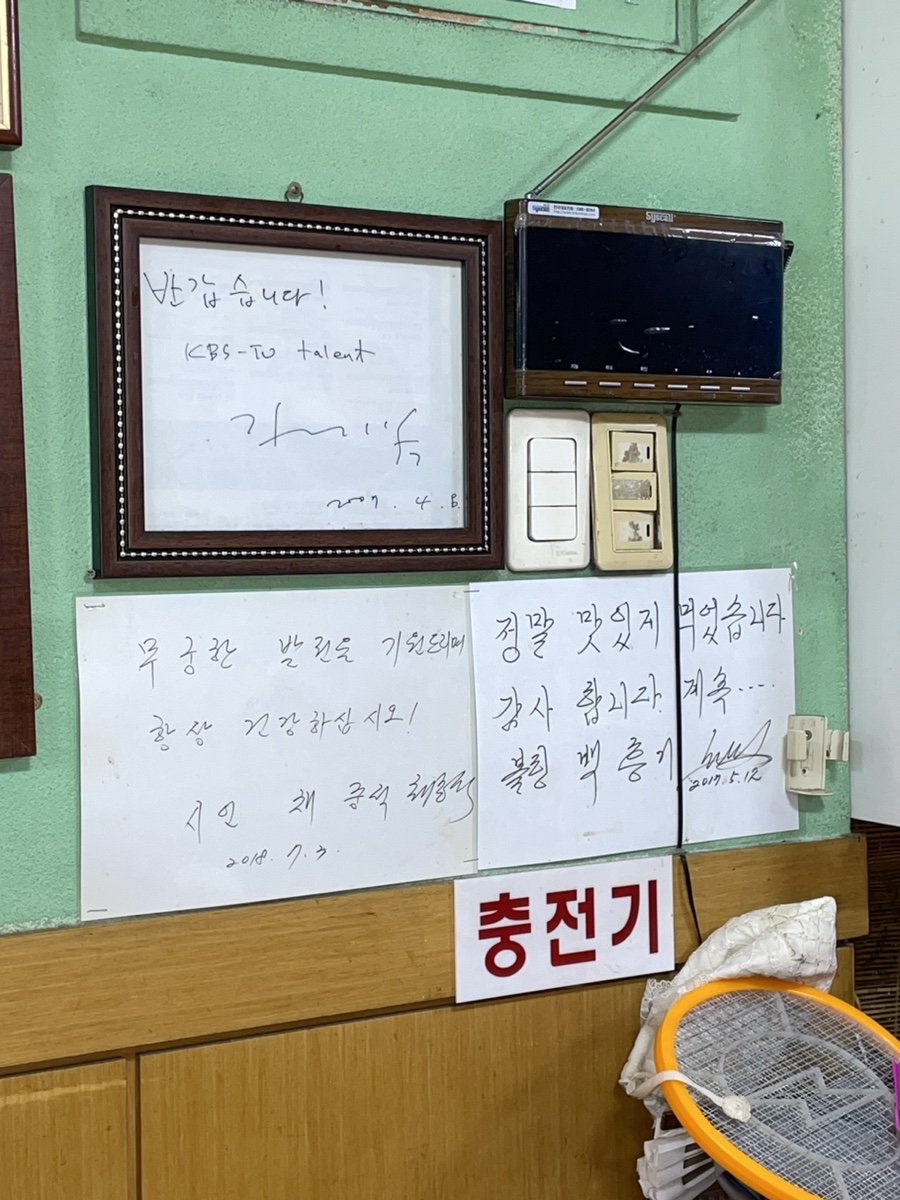 반갑습니다!
KBS-TV talent
2007. 4. 8.
Syscall
무궁한 발전을 기원드리며
항상 건강하십시오!
시인 채종석
2018. 7. 3.
정말 맛있게 먹었습니다
감사합니다. 계속....
볼링 백 종기
2017. 5. 12
충전기